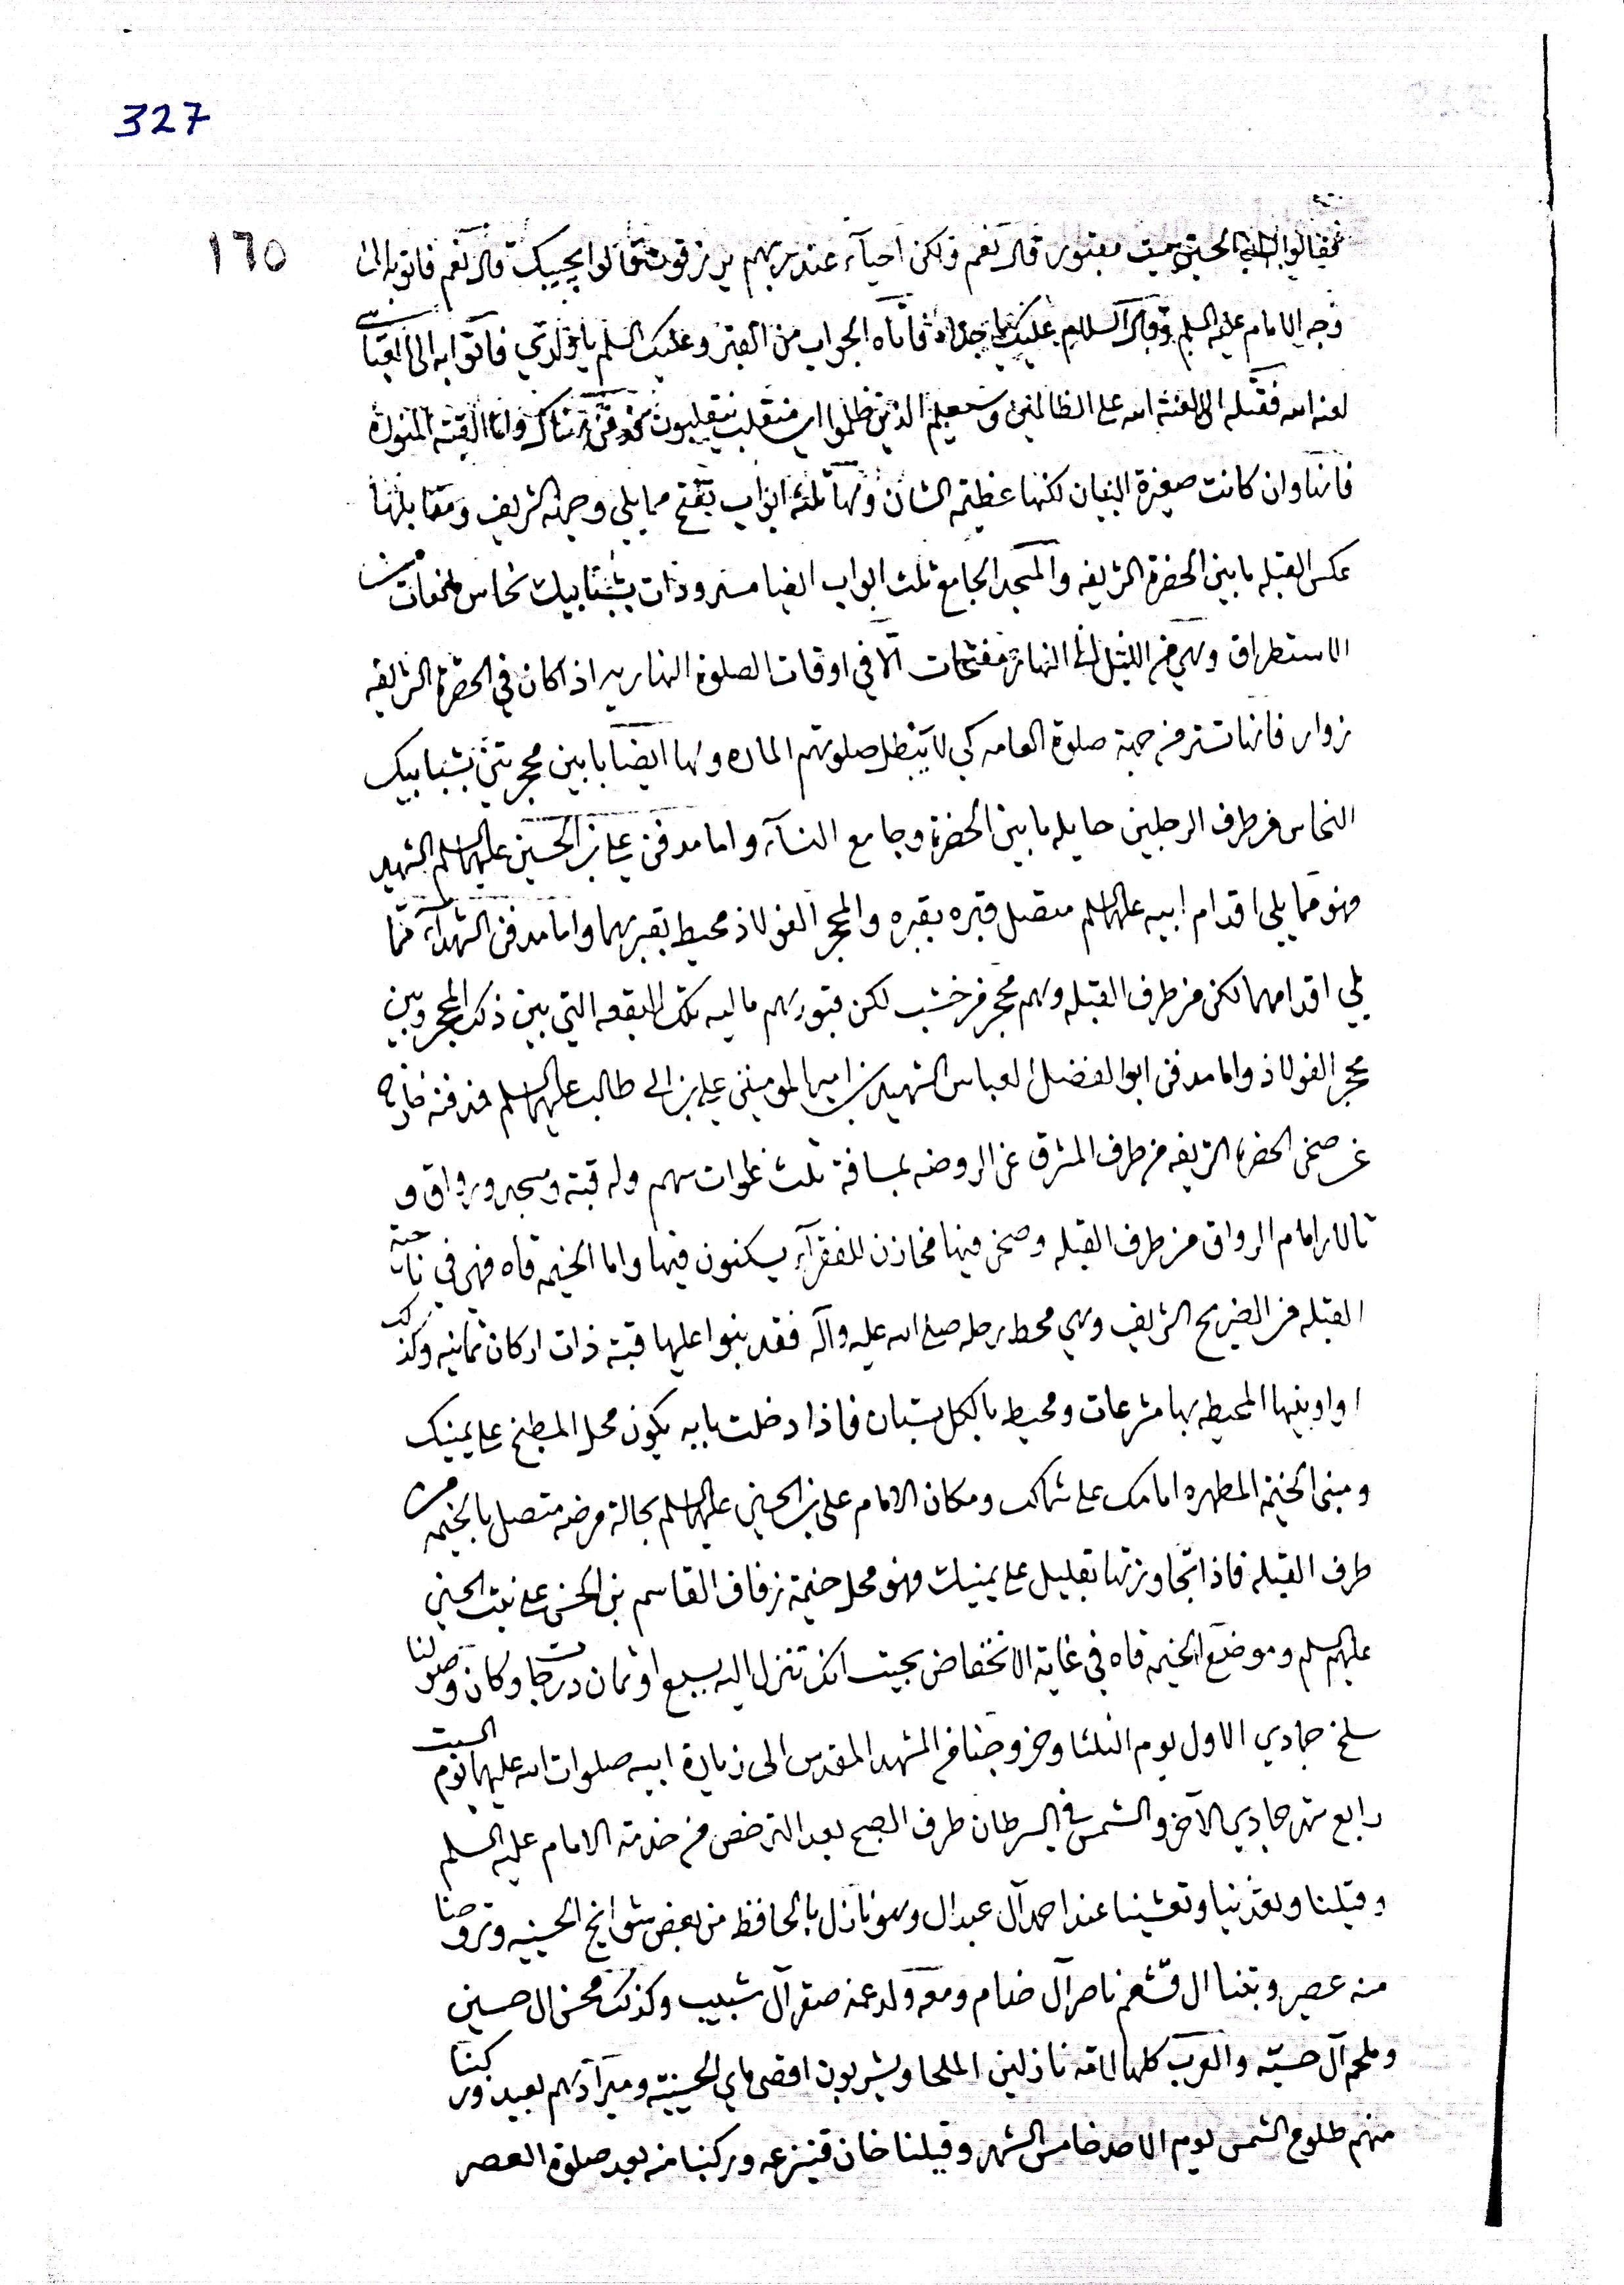 327
١٦٥
فقالوا له الحسين ميت مقبور قال نعم ولكن احيآء عند ربهم يرزقون قالوا يجيبك قال نعم فاتوا به الى
وجه الامام عليه السلم وقال السلام عليك يا جداه فاتاه الجواب من القبر وعليك السلم يا ولدي فاتوا به الى
لعنه الله فقتله الا لعنة الله على الظالمين وسيعلم الذين ظلموا اي منقلب ينقلبون واما القبة المنورة
فانها وان كانت صغيرة البنيان لكنها عظيمة الشان ولها ثلثة ابواب تفتح مما يلي وجهه الشريف ومقابلها
عكس القبله ما بين الحضرة الشريفه والمسجد الجامع ثلث ابواب ايضا مسدودات بشبابيك نحاس مانعات من
الاستطراق وهي من الليل الى النهار مفتحات الا في اوقات الصلوة النهاريه اذا كان في الحضرة الشريفه
زوار فانها تستر من جهة صلوة العامه كي لا يبطل صلوتهم الماره ولها ايضا بابين محجرتين بشبابيك
النحاس من طرف الرجلين حايله ما بين الحضرة وجامع النسآء واما مدفن علي بن الحسين عليهما السلم الشهيد
فهو مما يلي اقدام ابيه عليهما السلم متصل قبره بقبره والمحجر الفولاذ محيط بقبريهما واما مدفن الشهدآء مما
يلي اقدامهما لكن من طرف القبله ولهم محجر من خشب لكن قبورهم ماليه تلك البقعه التي بين ذلك المحجر وبين
محجر الفولاذ واما مدفن ابو الفضل العباس الشهيد بن امير المومنين علي بن ابي طالب عليهم السلم فمدفنه خارج
عن صحن الحضرة الشريفه من طرف المشرق عن الروضه بمسافة ثلث غلوات سهم وله قبة ومسجد ورواق و
تالار امام الرواق من طرف القبله وصحن فيها مخازن للفقرآء يسكنون فيها واما الخيمه قاه فهي في ناحية
القبله من الضريح الشريف وهي محط رحله صلى الله عليه وآله فقد بنوا عليها قبة ذات اركان ثمانيه وكذلك
اواوينها المحيطه بها مشرعات ومحيط بالكل بستان فاذا دخلت بابه يكون محل المطبخ على يمينك
ومبنى الخيمة المطهره امامك على شمالك ومكان الامام علي بن الحسين عليهما السلم بحالة مرضه متصل بالخيمه من
طرف القبله فاذا تجاوزتها بقليل على يمينك فهو محل خيمة زفاف القاسم بن الحسن على بنت الحسين
عليهم السلم وموضع الخيمه قاه في غاية الانخفاض بحيث انك تنزل اليه بسبع او ثمان درجات وكان وصولنا
سلخ جمادي الاول يوم الثلثا وخروجنا من المشهد المقدس الى زيارة ابيه صلوات الله عليهما يوم السبت
رابع شهر جمادي الآخر والشمس في السرطان طرف الصبح بعد الترخص من خدمة الامام عليه السلم
وقيلنا وتغدينا وتعشينا عند احمد آل عبدال وهو نازل بالحافظ من بعض شوانج الحسينيه وتروحنا
منه عصر وبتنا ال قشعم ناصر آل ضام ومعه ولد عمه صقر آل شبيب وكذلك محسن ال حسين
وملحم آل حسيّه والعرب كلها لامه نازلين الملحا ويشربون اقصى ماي الحسينيه وميرآدهم بعيد وركبنا
منهم طلوع الشمس يوم الاحد خامس الشهر وقيلنا خان قنيزعه وركبنا منه بعد صلوة العصر